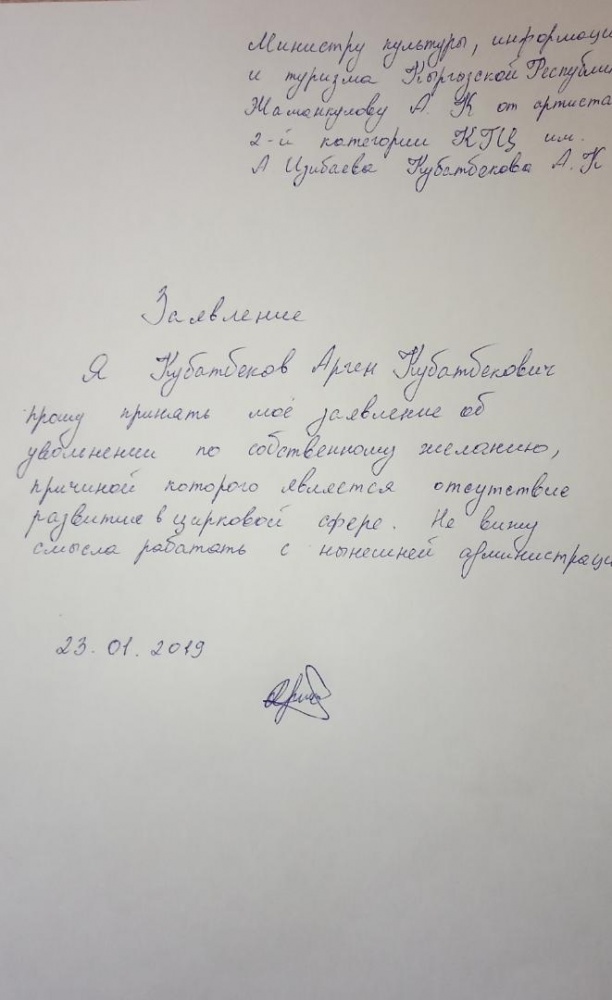 Министру культуры, информаци
и туризма Кыргозской Республи
Жаманкулову А. К от артиста
2-й категории КГЦ им.
А Изибаева Кубатбекова А. К
Заявление
Я Кубатбеков Арген Кубатбекович
прошу принять моё заявление об
увольнении по собственному желанию,
причиной которого является отсутствие
развития в цирковой сфере. Не вижу
смысла работать с нынешней администраци
23. 01. 2019